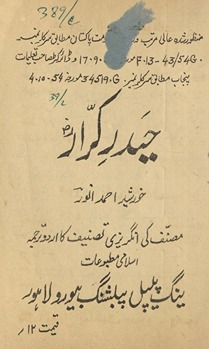 389/e
منظور شدہ عالی مرتب حکومت پاکستان مطابق سرکلر نمبر
F.13-43/54G. مورخہ 17.9. و ڈائرکٹر صاحب تعلیمات
پنجاب مطابق سرکلر نمبر 34519G. مورخہ 4.10.54
39/2
حیدرِ کرّارؓ
خورشید احمد انور
مصنّف کی انگریزی تصنیف کا اردو ترجمہ
اسلامی مطبوعات
ینگ پیپل پبلشنگ بیورو لاہور
قیمت ۱۲؍